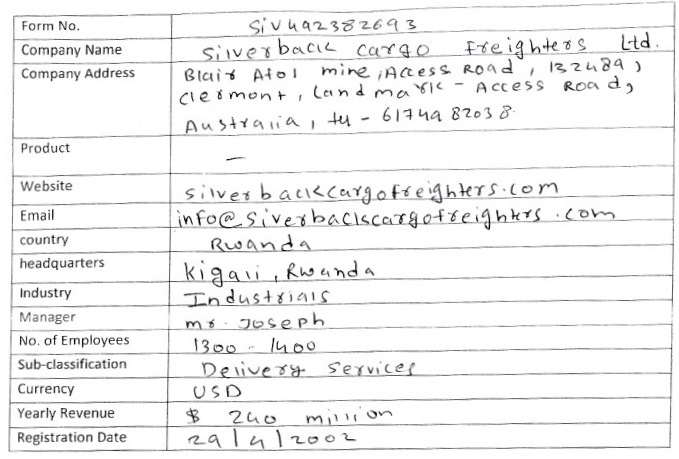 Form No. Siv492382693
Company Name Silverback cargo freighters Ltd.
Company Address Blair Atol mine, Access Road, 132489,
clermont, Landmark - Access Road,
Australia, tel - 6174982038.
Product -
Website silverbackcargofreighters.com
Email info@siverbackscargofreighters.com
country Rwanda
headquarters Kigali, Rwanda
Industry Industrials
Manager mr. Joseph
No. of Employees 1300 - 1400
Sub-classification Delivery Services
Currency USD
Yearly Revenue $ 240 million
Registration Date 29/4/2002